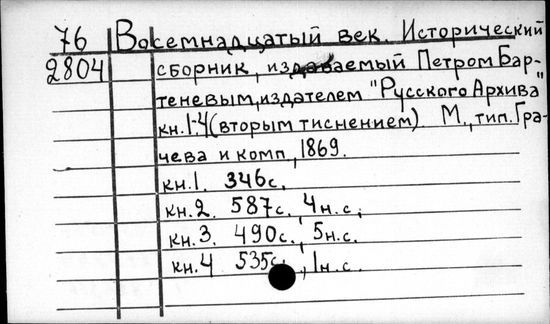 76 Восемнадцатый век. Исторический
2804 сборник, издаваемый Петром Бар-
теневым, издателем "Русского Архива"
кн.1-4 (вторым тиснением) М., тип. Гра-
чева и комп., 1869.
кн.1. 346с.
кн.2. 587с., 4н.с.;
кн.3. 490с., 5н.с.
кн.4 535с., 1н.с.